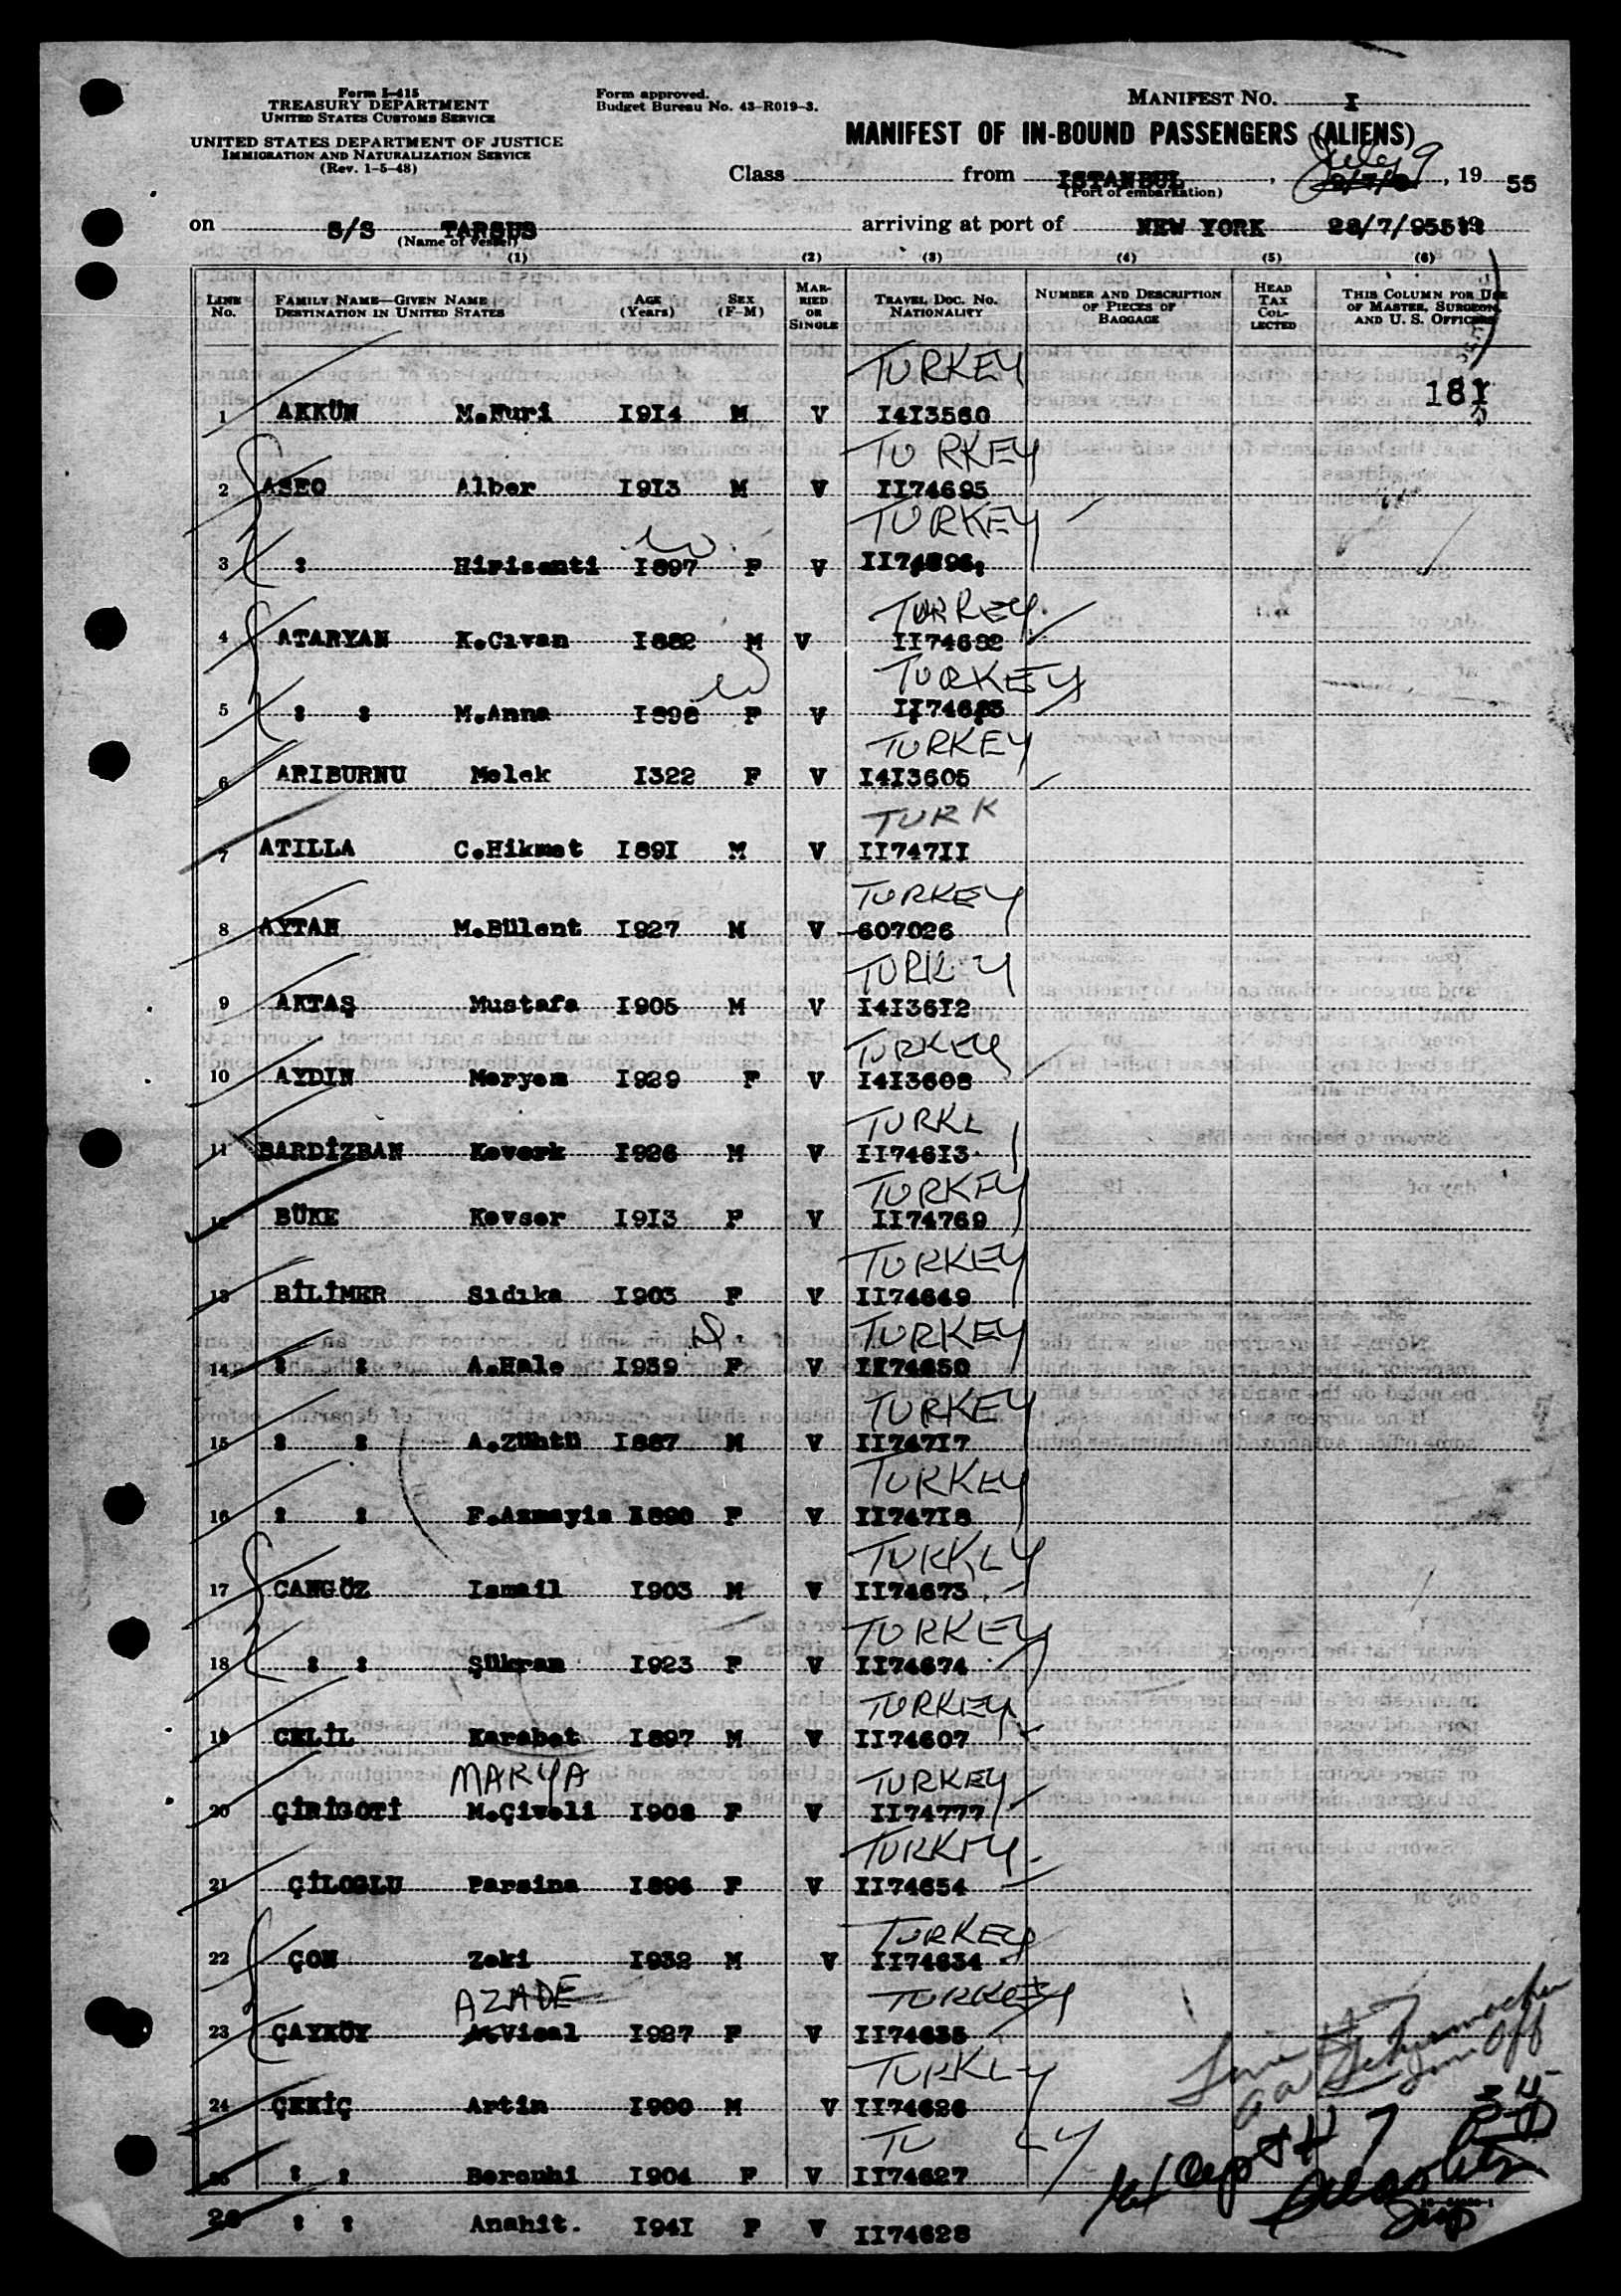 Form I-415
TREASURY DEPARTMENT
UNITED STATES CUSTOMS SERVICE
UNITED STATES DEPARTMENT OF JUSTICE
IMMIGRATION AND NATURALIZATION SERVICE
(Rev. 1-5-48)
Form approved.
Budget Bureau No. 43-R019-3.
MANIFEST NO. I
MANIFEST OF IN-BOUND PASSENGERS (ALIENS)
Class from ISTANBUL, July 9, 19 55
(Port of embarkation)
on S/S TARSUS arriving at port of NEW YORK
(Name of vessel)
(1) (2) (3) (4) (5) (6)
LINE No. FAMILY NAME—GIVEN NAME DESTINATION IN UNITED STATES AGE (Years) SEX (F-M) MARRIED OR SINGLE TRAVEL DOC. NO. NATIONALITY NUMBER AND DESCRIPTION OF PIECES OF BAGGAGE HEAD TAX COLLECTED THIS COLUMN FOR USE OF MASTER, SURGEON, AND U. S. OFFICERS
TURKEY
181
1 AKKÜN M.Nuri I9I4 M V I4I3560
TURKEY
2 ASEO Alber I9I3 M V II74695
TURKEY
3 " Hirisanti I897 F V
TURKEY
4 ATARYAN K.Cıvan I882 M V II74682
TURKEY
5 " " M.Anna I898 F V II74683
TURKEY
6 ARIBURNU Melek I322 F V I4I3605
TURK
7 ATILLA C.Hikmet I89I M V II747II
TURKEY
8 AYTAN M.Bülent I927 M V 607026
TURKEY
9 AKTAŞ Mustafa I905 M V I4I36I2
TURKEY
10 AYDIN Meryem I929 F V I4I3608
11 BARDİZBAN Kevork I926 M V II746I3
TURKEY
12 BÜKE Kevser I9I3 F V II74769
TURKEY
13 BİLİMER Sıdıka I903 F V II74649
TURKEY
14 " " A.Hale I939 F V II74650
TURKEY
15 " " A.Zühtü I887 M V II747I7
TURKEY
16 " " I890 F V II747I8
TURKEY
17 CANGÖZ Ismail I903 M V II74673
TURKEY
18 " " Şükran I923 F V II74674
TURKEY
19 CELİL Karabet I897 M V II74607
MARYA TURKEY
20 ÇİRİGOTİ M.Çiveli I908 F V II74777
TURKEY
21 ÇİLOGLU Parsina I896 F V II74654
TURKEY
22 ÇON Zeki I932 M V II74634
AZADE TURKEY
23 ÇAYKÖY A.Visal I927 F V II74635
TURKEY
24 ÇEKİÇ Artin I900 M V II74626
25 " " Beronhi I904 F V II74627
26 " " Anahit. I94I F V II74628